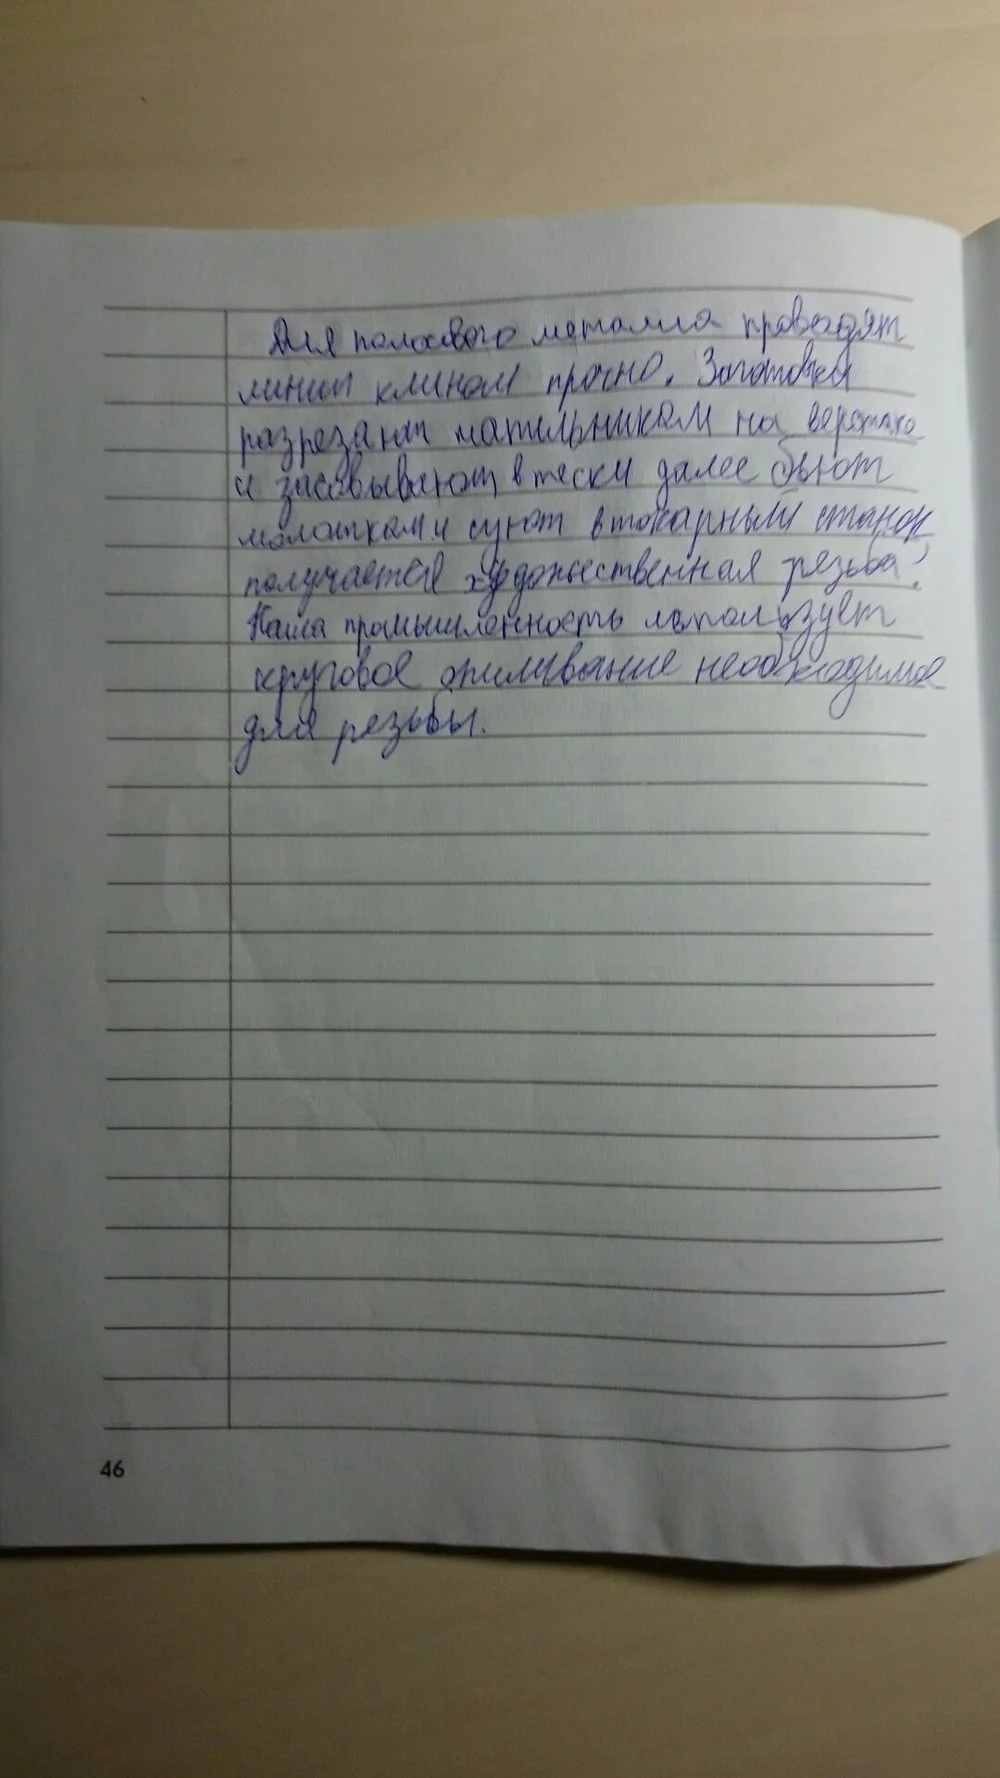 Для полосового металла проводят
линии клином прочно. Заготовки
разрезают на верстаке
и засовывают в тески далее бьют
молотком и суют в токарный станок
получается художественная резьба!
Наша промышленность использует
круговое опиливание необходимое
для резьбы.
46